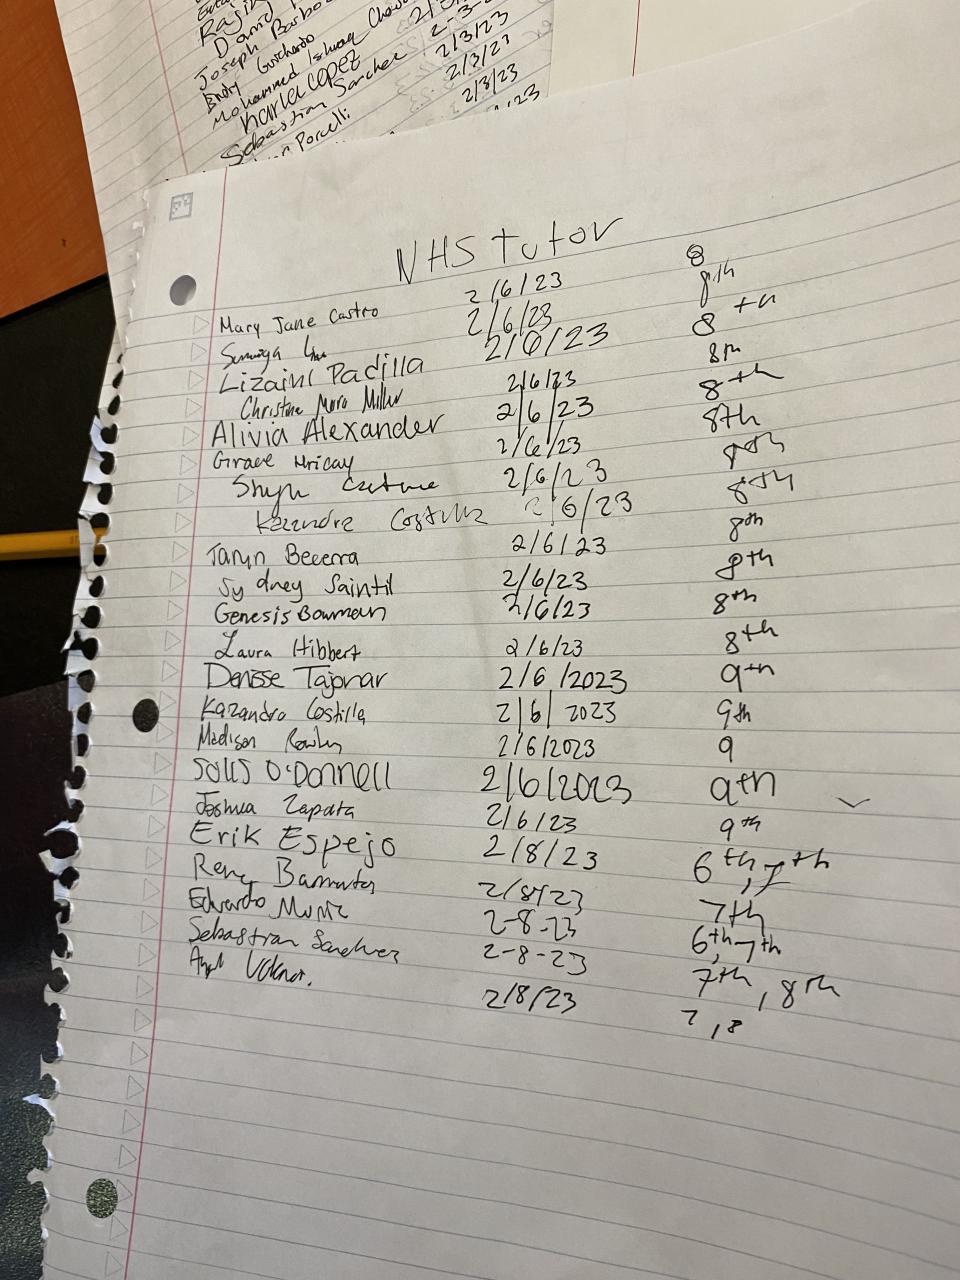 David
Joseph Barbo
Brady Guichardo
Mohammed Ishaaq
Karla Lopez 2-3-
Sebastian Sanchez 2/3/23
2/3/23
Porcelli 2/3/23
23
NHS Tutor
Mary Jane Castro 2/6/23 8
2/6/23 8th
Lizaini Padilla 2/6/23 8th
Christine Moro Miller 2/6/23 8th
Alivia Alexander 2/6/23 8th
Grace 2/6/23 8th
2/6/23 8th
Kazandra Costilla 2/6/23 8th
Taryn Becerra 2/6/23 8th
Sydney Saintil 2/6/23 8th
Genesis Bowman 2/6/23 8th
Laura Hibbert 2/6/23 8th
Denisse Tajonar 2/6/2023 9th
Kazandra Costilla 2/6/2023 9th
Madison Rowley 2/6/2023 9
Solis O'Donnell 2/6/2023 9th
Joshua Zapata 2/6/23 9th
Erik Espejo 2/8/23 6th, 7th
2/8/23 7th
Eduardo Muniz 2-8-23 6th, 7th
Sebastian Sanchez 2-8-23 7th, 8th
Angel 2/8/23 7,8